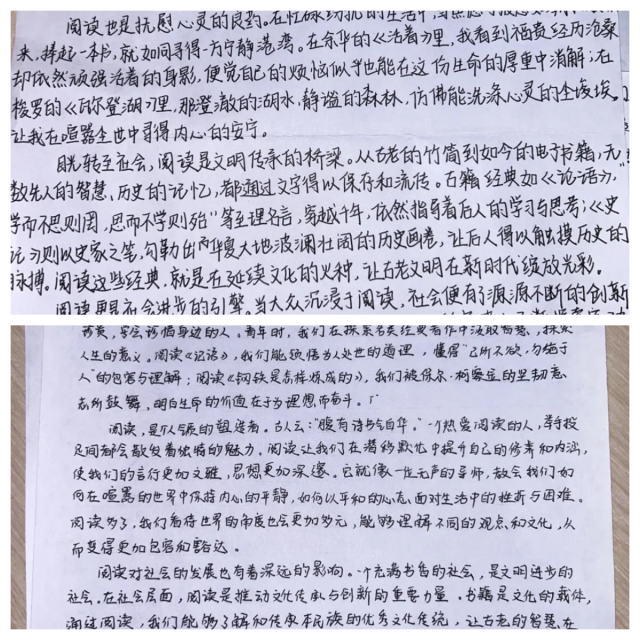 阅读也是抚慰心灵的良药。在忙碌纷扰的生活中,
来,捧起一本书,就如同寻得一方宁静港湾。在余华的《活着》里,我看到福贵经历沧桑
却依然顽强活着的身影,便觉自己的烦恼似乎也能在这份生命的厚重中消解;在
梭罗的《瓦尔登湖》里,那澄澈的湖水,静谧的森林,仿佛能洗涤心灵的尘埃,
让我在喧嚣尘世中寻得内心的安宁。
目光转至社会,阅读是文明传承的桥梁。从古老的竹简到如今的电子书籍,无
数先人的智慧、历史的记忆,都通过文字得以保存和流传。古籍经典如《论语》,"
学而不思则罔,思而不学则殆"等至理名言,穿越千年,依然指导着后人的学习与思考;《史
记》则以史家之笔,勾勒出华夏大地波澜壮阔的历史画卷,让后人得以触摸历史的
脉搏。阅读这些经典,就是在延续文化的火种,让古老文明在新时代绽放光彩。
阅读更是社会进步的引擎。当大众沉浸于阅读,社会便有了源源不断的创新
学会珍惜身边的人。青年时,我们在探索名类经典著作中汲取智慧,探索
人生的意义。阅读《论语》,我们能领悟为人处世的道理,懂得"己所不欲,勿施于
人"的包容与理解;阅读《钢铁是怎样炼成的》,我们被保尔·柯察金的坚韧意
志所鼓舞,明白生命的价值在于为理想而奋斗。
阅读,是个人气质的塑造者。古人云:"腹有诗书气自华。"一个热爱阅读的人,举手投
足间都会散发着独特的魅力。阅读让我们在潜移默化中提升自己的修养和内涵,
使我们的言行更加文雅,思想更加深邃。它就像一位无声的导师,教会我们如
何在喧嚣的世界中保持内心的平静,如何以平和的心态面对生活中的挫折与困难。
阅读多了,我们看待世界的角度也会更加多元,能够理解不同的观点和文化,从
而变得更加包容和豁达。
阅读对社会的发展也有着深远的影响。一个充满书香的社会,是文明进步的
社会。在社会层面,阅读是推动文化传承与创新的重要力量。书籍是文化的载体,
通过阅读,我们能够了解和传承本民族的优秀文化传统,让古老的智慧在